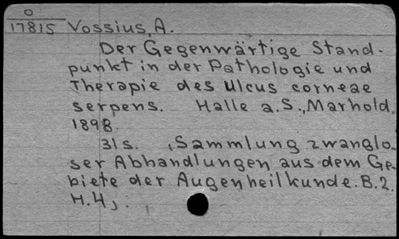 O
17815 Vossius, A.
Der Gegenwärtige Stand-
punkt in der Pathologie und
Therapie des Ulcus corneae
serpens. Halle a.S., Marhold,
1898.
31s. (Sammlung zwanglo-
ser Abhandlungen aus dem Ge-
biete der Augenheilkunde. B.2.
H.4).